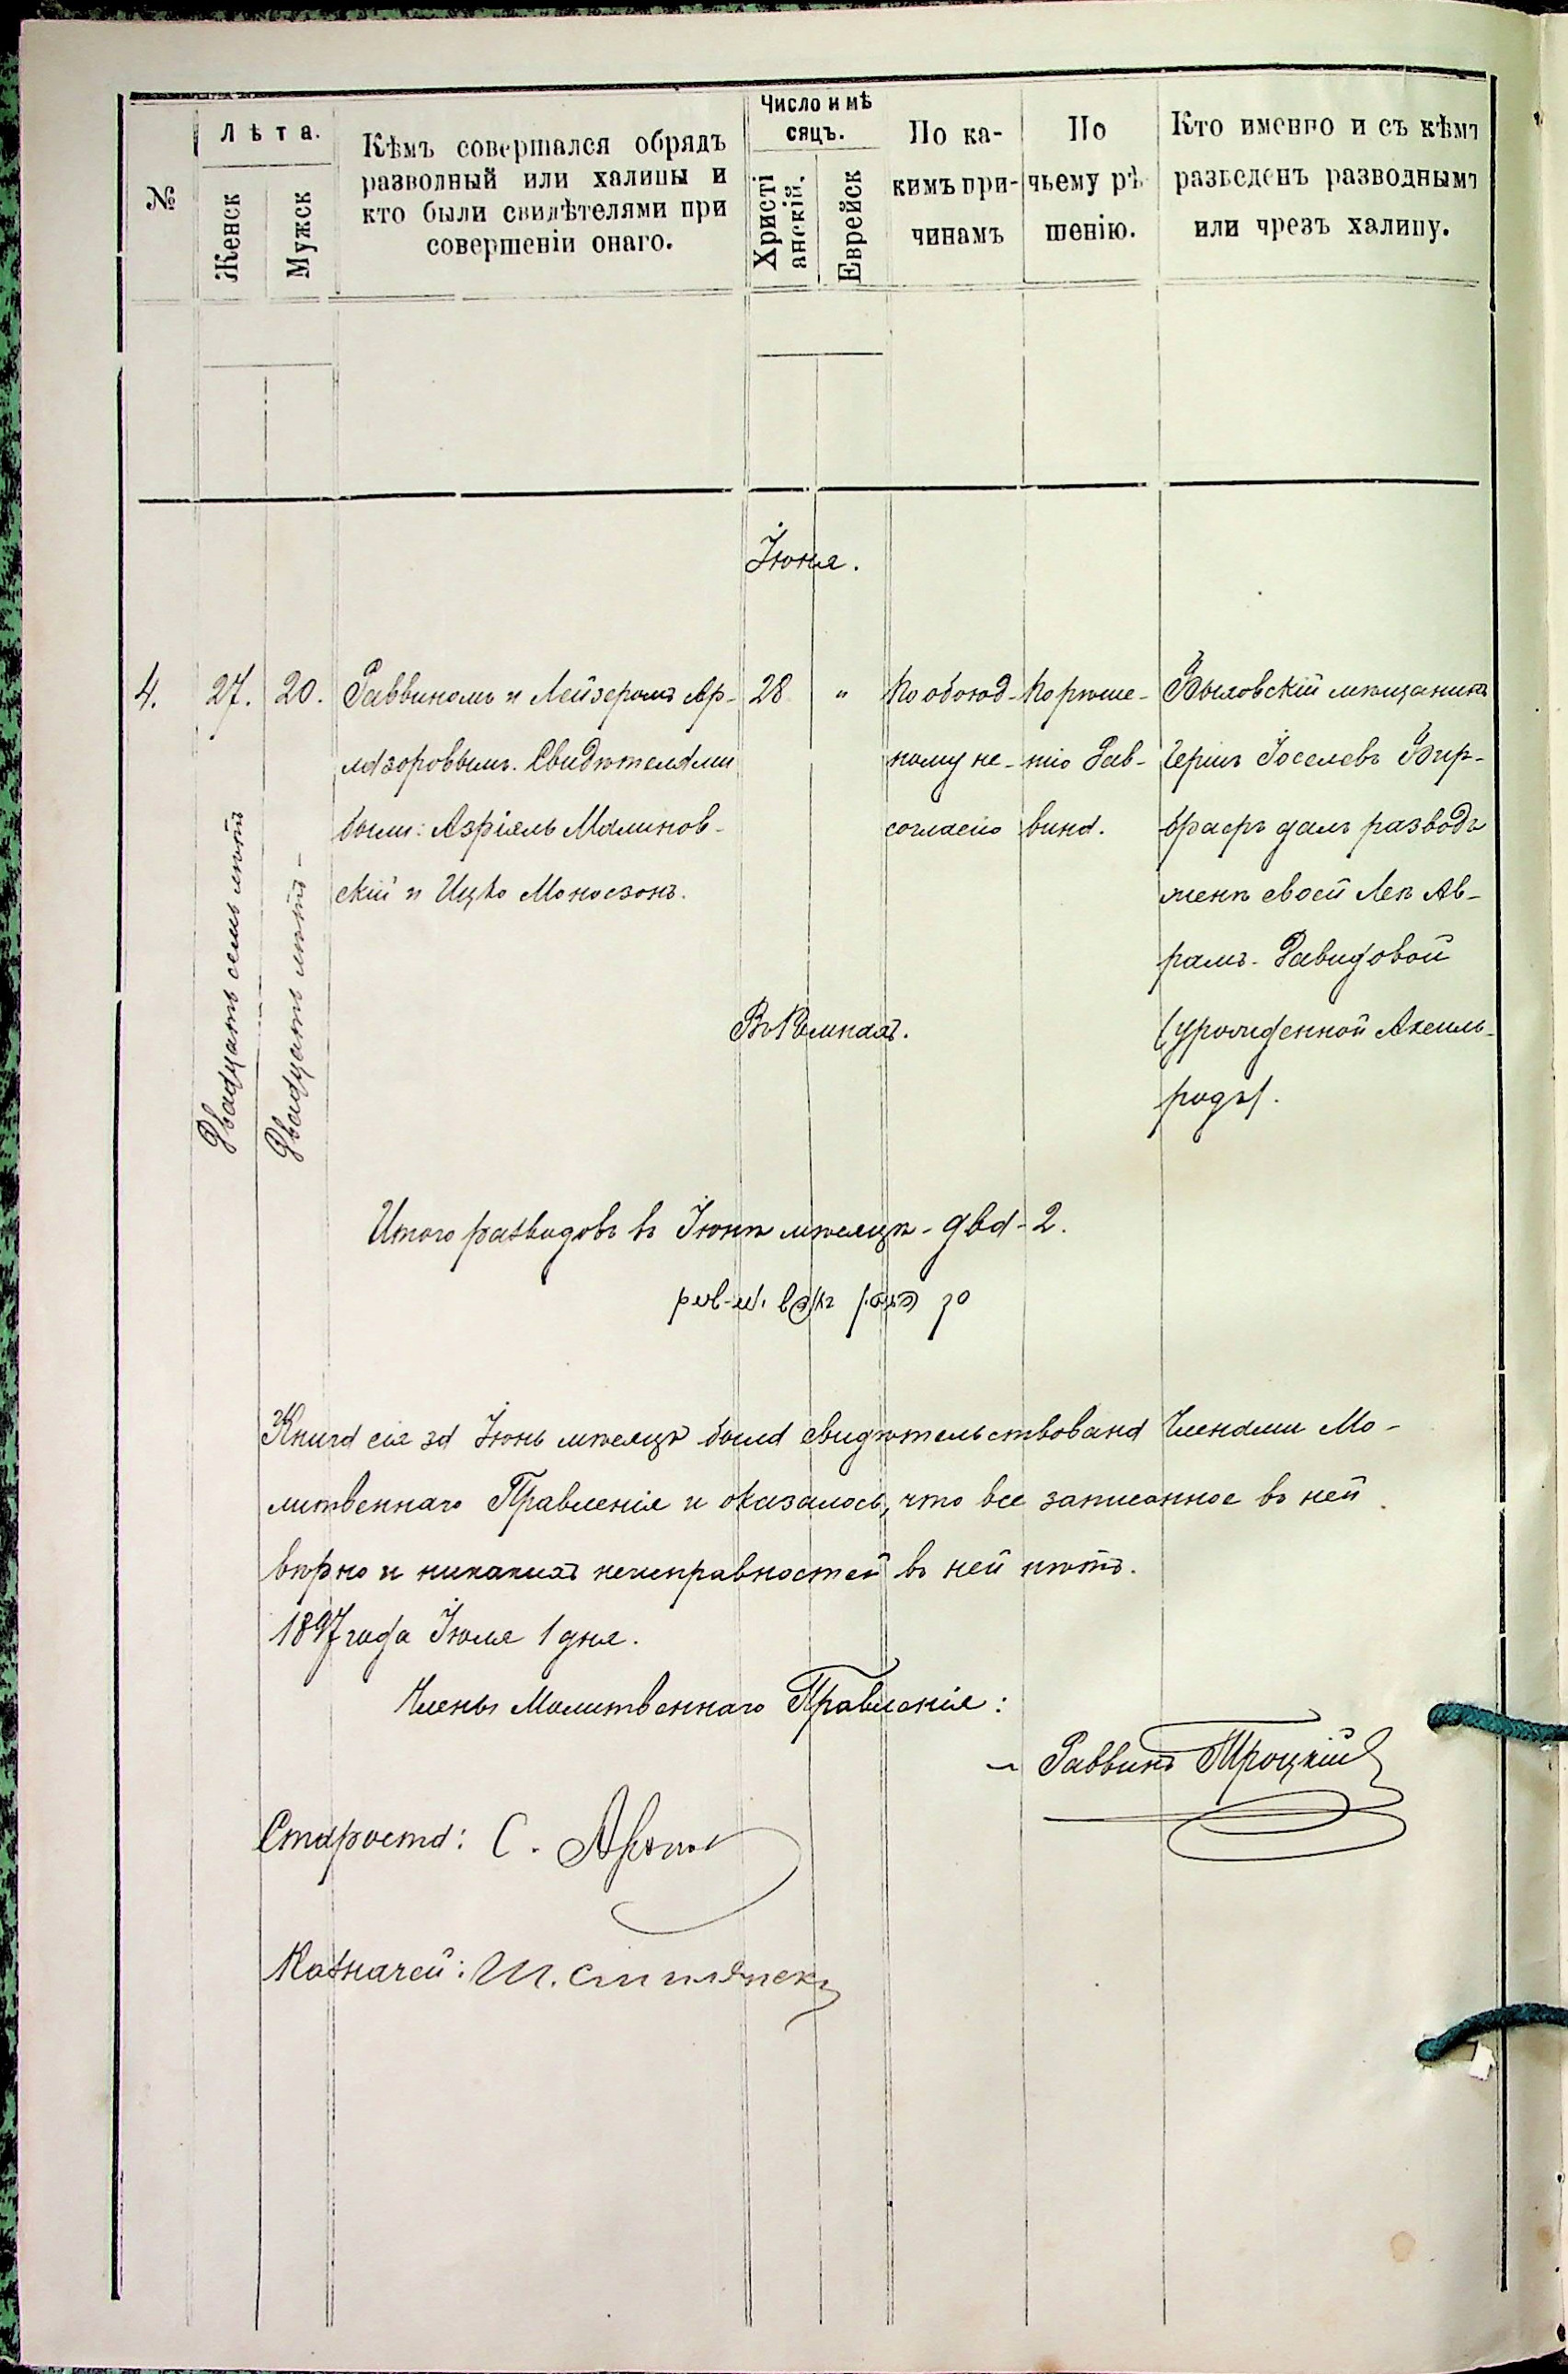 №
Лѣта.
Женск
Мужск
Кѣмъ совершался обрядъ
разводный или халицы и
кто были свидѣтелями при
совершеніи онаго.
Число и мѣ
сяцъ.
Христі
анскій.
Еврейск
По ка-
кимъ при-
чинамъ
По
чьему рѣ
шенію.
Кто именно и съ кѣмъ
разведенъ разводнымъ
или чрезъ халицу.
Іюня.
4.
27.
Двадцать семь лѣтъ
20.
Двадцать лѣтъ -
Раввиномъ и Лейзеромъ Ар-
лозоровымъ. Свидѣтелями
были: Азріель Малинов-
скій и Ицко Моносзонъ.
28
"
По обоюд-
ному не-
согласію
По рѣше-
нію Рав-
вина.
Быховскій мѣщанинъ
Гершъ Іоселевъ Бир-
браеръ далъ разводъ
женѣ своей Леѣ Ав-
рамъ-Давидовой
(урожденной Ахсель-
родъ).
Въ Ромнахъ.
Итого разводовъ въ Іюнѣ мѣсяцѣ - два - 2.
Книга сія за Іюнь мѣсяцъ была свидѣтельствована Членами Мо-
литвеннаго Правленія и оказалось, что все записанное въ ней
вѣрно и никакихъ неисправностей въ ней нѣтъ.
1897 года Іюля 1 дня.
Члены Молитвеннаго Правленія:
Раввинъ Троцкій
Староста: С.
Казначей: